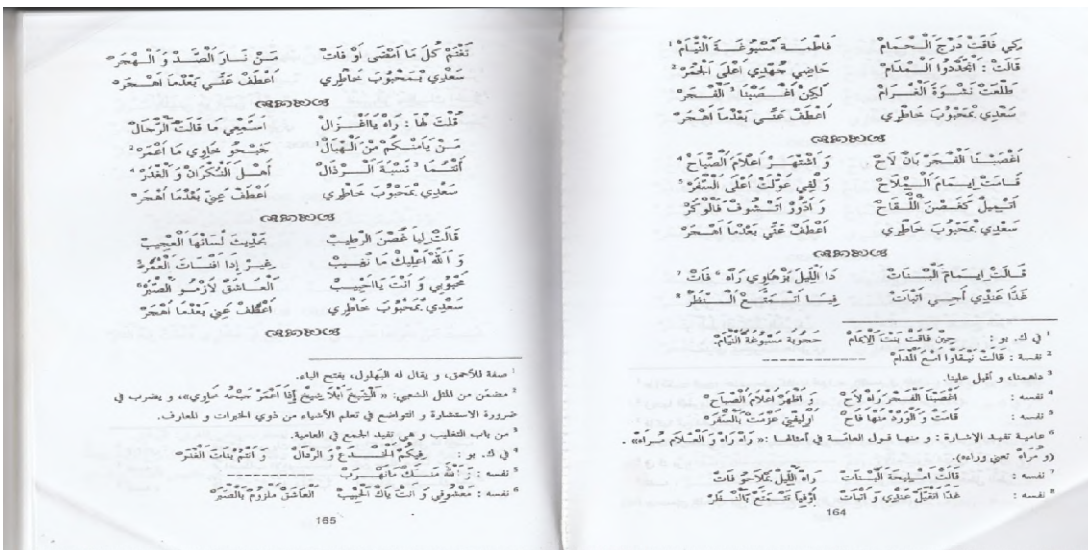 مكي فاقت درج الحمام فاطمة مسبوغة النيام 1
قالت : اتجددوا المدام حاضي جهدي اعلى الجمر 2
طلعت نشوة الغرام لكن اغصبنا 3 الفجر
سعدي بمحبوب خاطري اعطف عني بعدما اهجر
اغصبنا الفجر بان لاح و اشتهر اعلام الصباح 4
قامت إيمام الملاح و لفي عولت اعلى السفر 5
اتميل كغصن اللقاح و ادور اتشوف فالوكر
سعدي بمحبوب خاطري اعطف عني بعدما اهجر
قالت إيمام البنات دا الليل بزهاوي راه 6 فات 7
غدا عندي أجي اتبات فيا اتمتع النظر 8
1 في ك. بو : حين فاقت بنت الإيمام حجوبة مسبوغة النيام
2 نفسه : قالت نيقاوا اسم المدام ------------
3 داهمنا، و أقبل علينا.
4 نفسه : اغصبنا الفجر راه لاح و اظهر اعلام الصباح
5 نفسه : قامت و الورد منها فاح اوليفتي عزمت بالسفر
6 عامية تفيد الإشارة : و منها قول العامة في أمثالها :« راه راه و الغلام مراه» .
(و مراه تعني وراءه).
7 نفسه : قالت امليحة البنات راه الليل بملاحو فات
8 نفسه : غدا اتقبل عندي و اتبات اوفيا تتمتع بالنظر
164
نغنم كل ما امضى أو فات من نار الصد و الهجر
سعدي بمحبوب خاطري اعطف عني بعدما اهجر
قلت لها : راه يااغزال استمعي ما قالت الرجال
من يامنكم من الهبال 1 خبحو خاوي ما اعمر 2
أنتما 3 نسبة الرذال أهل النكران و الغدر 4
سعدي بمحبوب خاطري اعطف عني بعدما اهجر
قالت ليا غصن الرطيب بحديث لسانها العجيب
و الله اعليك ما نغيب غير إذا افنات العمر 5
محبوبي و انت ياالحبيب العاشق لازمو الصبر 6
سعدي بمحبوب خاطري اعطف عني بعدما اهجر
1 صفة للأحمق، و يقال له البهلول، بفتح الباء.
2 مضمن من المثل الشعبي: « الشيخ ابلا شيخ إذا اعمر خاوي»، و يضرب في
ضرورة الاستشارة و التواضع في تعلم الأشياء من ذوي الخبرات و المعارف.
3 من باب التغليب و هي تفيد الجمع في العامية.
4 في ك. بو : فيكم الخدع و الرفال و انتم بنات الغدر
5 نفسه : و الله منك مانهرب ------------
6 نفسه : معشوقي و انت ياك الحبيب العاشق ملزوم بالصبر
165